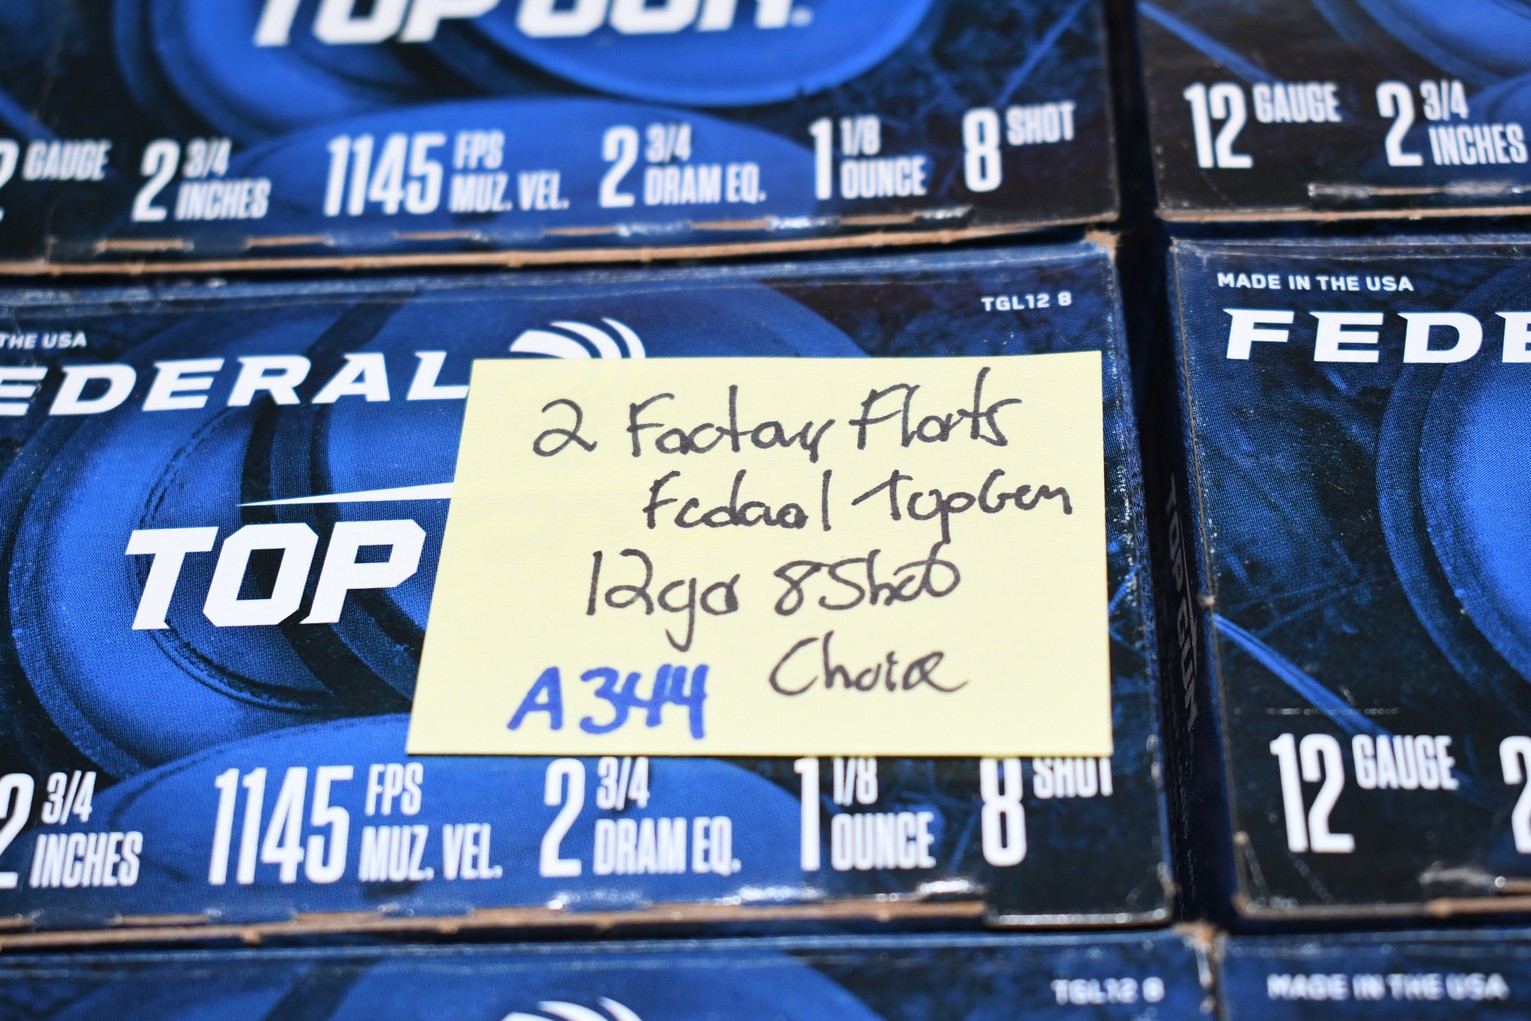 TOP GUN®
GAUGE 2 3/4 INCHES 1145 FPS MUZ. VEL. 2 3/4 DRAM EQ. 1 1/8 OUNCE 8 SHOT
12 GAUGE 2 3/4 INCHES
THE USA
TGL12 8
MADE IN THE USA
EDERAL
FEDE
TOP
2 Factory Flats
Federal TopGun
12ga 8 Shot
Choice
A344
TOP GUN
2 3/4 INCHES 1145 FPS MUZ. VEL. 2 3/4 DRAM EQ. 1 1/8 OUNCE 8 SHOT
12 GAUGE 2
TGL12 8
MADE IN THE USA